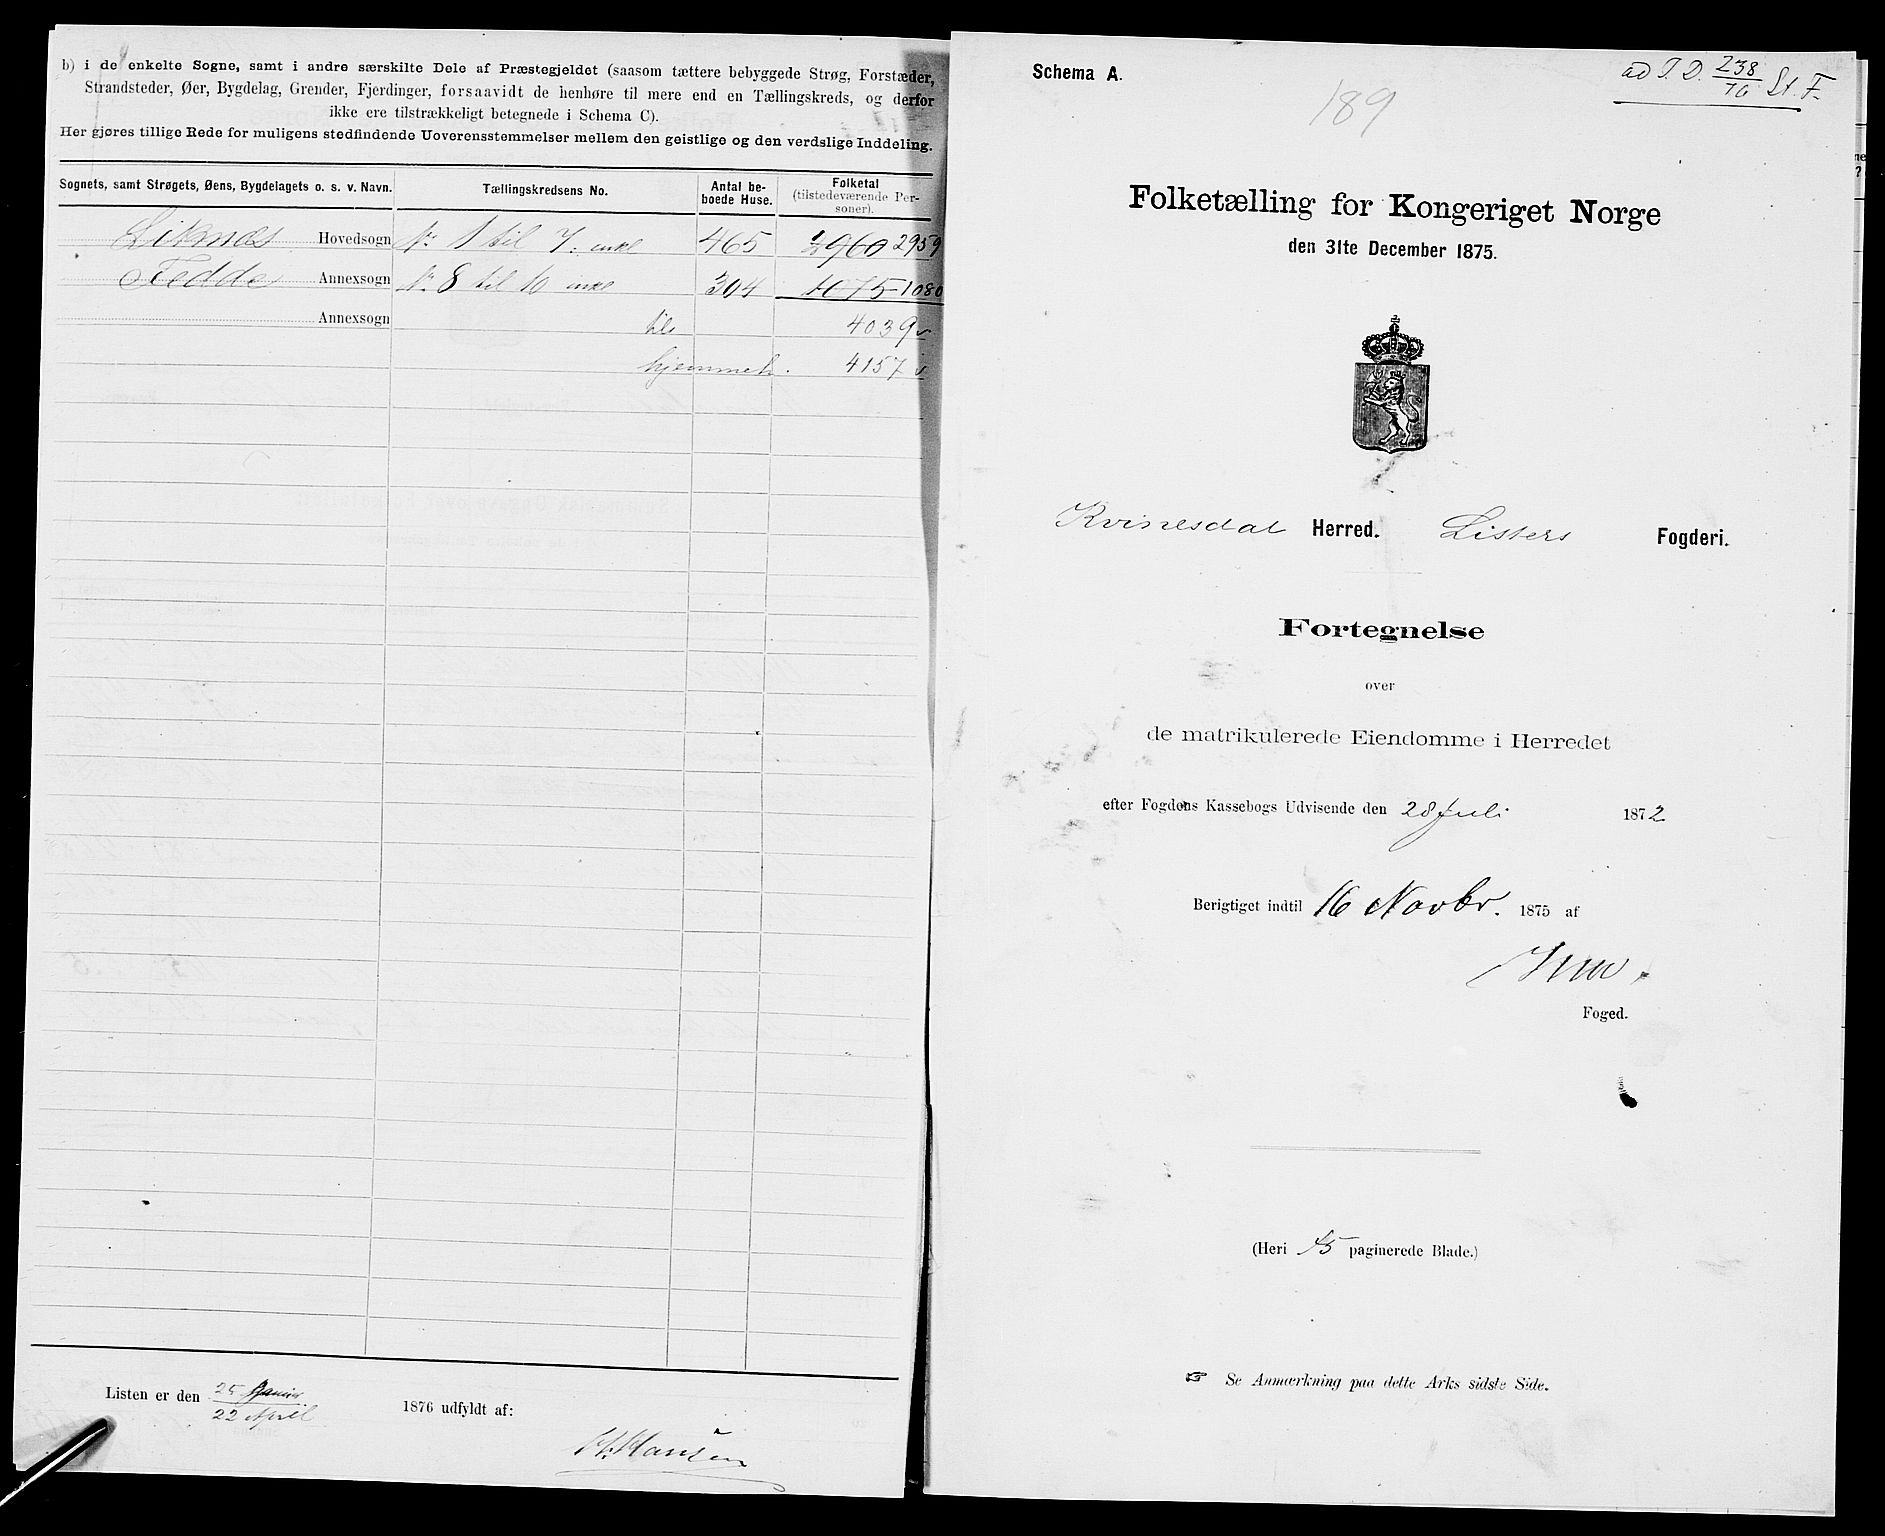 b) i de enkelte Sogne, samt i andre særskilte Dele af Præstegjeldet (saasom tættere bebyggede Strøg, Forstæder,
Strandsteder, Øer, Bygdelag, Grender, Fjerdinger, forsaavidt de henhøre til mere end en Tællingskreds, og derfor
ikke ere tilstrækkeligt betegnede i Schema C).
Her gjøres tillige Rede for muligens stedfindende Uoverensstemmelser mellem den geistlige og den verdslige Inddeling.
Sognets, samt Strøgets, Øens, Bygdelagets o. s. v. Navn. Tællingskredsens No. Antal be-
boede Huse. Folketal
(tilstedeværende Per-
soner).
Liknæs Hovedsogn No 1 til 7. inkl 465 2960 2959
Fedde Annexsogn No 8 til 10 inkl 304 1075 1080
Annexsogn tils 4039
hjemmeh. 4157
Listen er den 25 Januar
22 April 1876 udfyldt af:
Hansen
Schema A.
189
ad T. D. 238/76 St. F.
Folketælling for Kongeriget Norge
den 31te December 1875.
Kvinesdal Herred. Listers Fogderi.
Fortegnelse
over
de matrikulerede Eiendomme i Herredet
efter Fogdens Kassebogs Udvisende den 28 Juli 1872
Berigtiget indtil 16 Novbr. 1875 af
Foged.
(Heri 15 paginerede Blade.)
☞ Se Anmærkning paa dette Arks sidste Side.